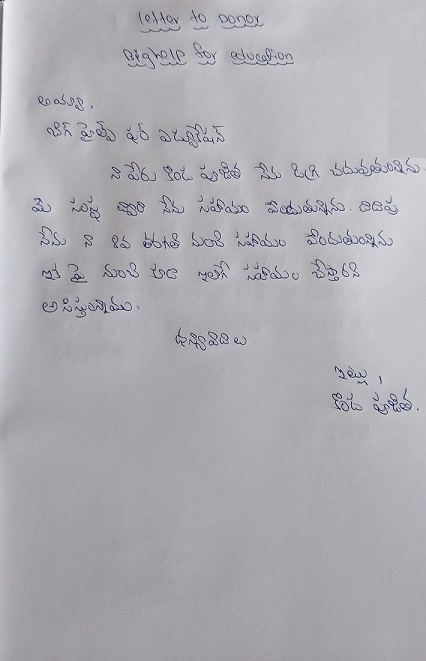 Letter to Donor
Bighelp for education
అయ్యా,
బిగ్ హెల్ప్ ఫర్ ఎడ్యుకేషన్
నా పేరు కొండ పూజిత నేను డిగ్రీ చదువుతున్నాను.
మీ సంస్థ ద్వారా నేను సహాయం పొందుతున్నాను.
నేను నా 8వ తరగతి నుంచి సహాయం పొందుతున్నాను
ఇక పై నుంచి కూడా ఇలాగే సహాయం చేస్తారని
ఆశిస్తున్నాము.
ధన్యవాదాలు
ఇట్లు,
కొండ పూజిత.